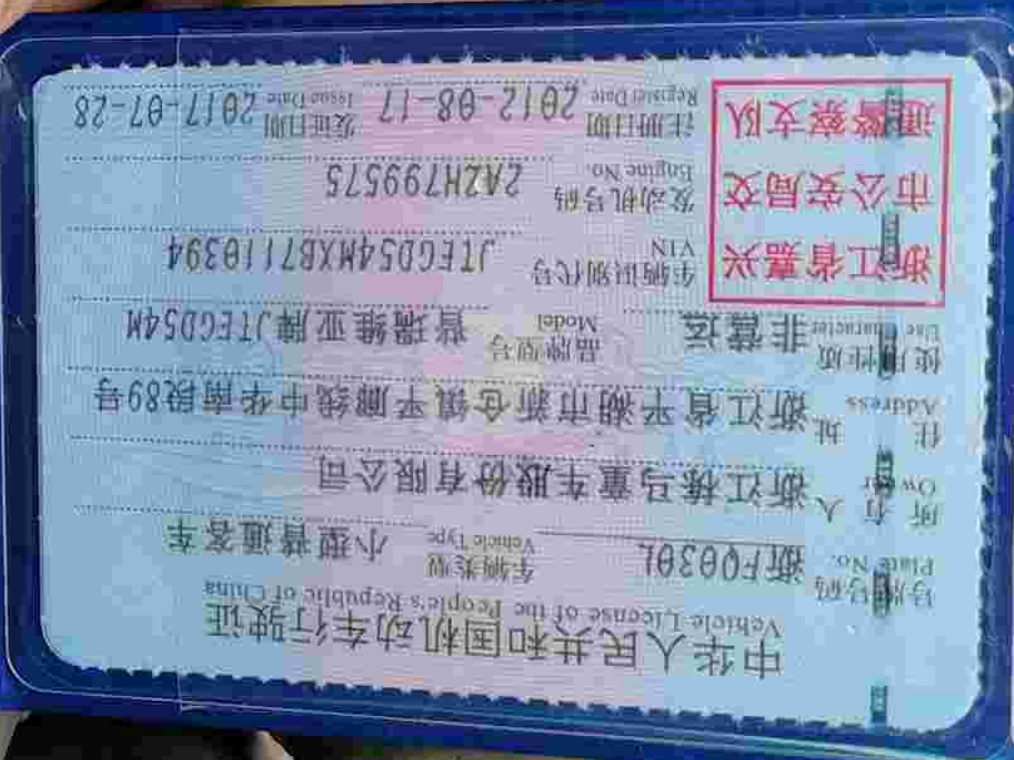 中华人民共和国机动车行驶证
Vehicle License of the People's Republic of China
号牌号码 浙FQ030L 车辆类型 小型普通客车
Plate No. Vehicle Type
所有人 浙江栋马童车股份有限公司
Owner
住址 浙江省平湖市新仓镇平廊线中华南段89号
Address
使用性质 非营运 品牌型号 普瑞维亚牌JTEGD54M
Use Character Model
浙江省嘉兴
市公安局交
通警察支队
车辆识别代号 JTEGD54MXB7110394
VIN
发动机号码 2AZH799575
Engine No.
注册日期 2012-08-17 发证日期 2017-07-28
Register Date Issue Date